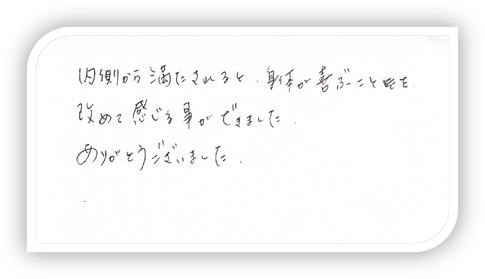 内側から満たされると、身体が喜ぶこと を、
改めて感じる事ができました.
ありがとうございました.